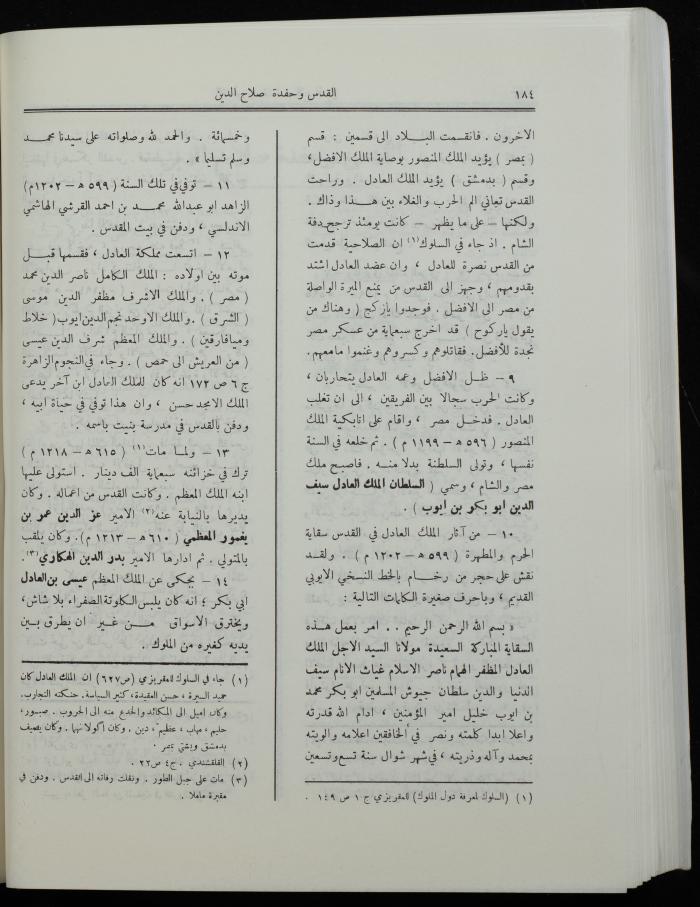 ١٨٤
القدس وحفدة صلاح الدين
الاخرون . فانقسمت البلاد الى قسمين : قسم
( بمصر ) يؤيد الملك المنصور بوصاية الملك الافضل،
وقسم ( بدمشق ) يؤيد الملك العادل . وراحت
القدس تعاني الم الحرب والغلاء بين هذا وذاك .
ولكنها – على ما يظهر – كانت يومئذ ترجح دفة
الشام . اذ جاء في السلوك(١) ان الصلاحية قدمت
من القدس نصرة للعادل ، وان عضد العادل اشتد
بقدومهم ، وجهز الى القدس من يمنع الميرة الواصلة
من مصر الى الافضل . فوجدوا يازكج ( وهناك من
يقول ياركوح ) قد اخرج سبعماية من عسكر مصر
نجدة للأفضل. فقاتلوهم وكسروهم وغنموا مامعهم.
٩ – ظل الافضل وعمه العادل يتحاربان ،
وكانت الحرب سجالا بين الفريقين ، الى ان تغلب
العادل . فدخل مصر ، واقام على اتابكية الملك
المنصور ( ٥٩٦ ه – ١١٩٩ م ) . ثم خلعه في السنة
نفسها ، وتولى السلطنة بدلا منه . فاصبح ملك
مصر والشام ، وسمي ( السلطان الملك العادل سيف
الدين ابو بكر بن ايوب ) .
١٠ – من آثار الملك العادل في القدس سقاية
الحرم والمطهرة ( ٥٩٩ ه – ١٢٠٢ م ) . ولقد
نقش على حجر من رخام بالخط النسخي الايوبي
القديم ، وباحرف صغيرة الكلمات التالية :
« بسم الله الرحمن الرحيم . . امر بعمل هذه
السقاية المباركة السعيدة مولانا السيد الاجل الملك
العادل المظفر الهمام ناصر الاسلام غياث الانام سيف
الدنيا والدين سلطان جيوش المسلمين ابو بكر محمد
بن ايوب خليل امير المؤمنين ، ادام الله قدرته
واعلا ابدا كلمته ونصر في الخافقين اعلامه والويته
بمحمد وآله وذريته ، في شهر شوال سنة تسع وتسعين
(١) (السلوك لمعرفة دول الملوك) للمقريزي ج ١ ص ١٤٩ .
وخمسمائة . والحمد لله وصلواته على سيدنا محمد
وسلم تسليما » .
١١ – توفي في تلك السنة ( ٥٩٩ ه – ١٢٠٢م)
الزاهد ابو عبدالله محمد بن احمد القرشي الهاشمي
الاندلسي ، ودفن في بيت المقدس .
١٢ – اتسعت مملكة العادل ، فقسمها قبل
موته بين اولاده : الملك الكامل ناصر الدين محمد
( مصر ) . والملك الاشرف مظفر الدين موسى
( الشرق ) . والملك الاوحد نجم الدين ايوب( خلاط
وميافارقين ) . والملك المعظم شرف الدين عيسى
( من العريش الى حمص ) . وجاء في النجوم الزاهرة
ج ٦ ص ١٧٢ انه كان للملك العادل ابن آخر يدعى
الملك الامجد حسن ، وان هذا توفي في حياة ابيه ،
ودفن بالقدس في مدرسة بنيت باسمه .
١٣ – ولما مات(١) ( ٦١٥ ه – ١٢١٨ م )
ترك في خزائنه سبعماية الف دينار . استولى عليها
ابنه الملك المعظم . وكانت القدس من اعماله . وكان
يديرها بالنيابة عنه(٢) الامير عز الدين عمر بن
يغمور المعظمي ( ٦١٠ ه – ١٢١٣ م) . وكان يلقب
بالمتولي . ثم ادارها الامير بدر الدين الهكاري(٣).
١٤ – يحكى عن الملك المعظم عيسى بن العادل
ابي بكر ؛ انه كان يلبس الكلوتة الصفراء بلا شاش،
ويخترق الاسواق من غير ان يطرق بين
يديه كغيره من الملوك .
(١) جاء في السلوك للمقريزي (ص ٦٢٧) ان الملك العادل كان
حميد السيرة ، حسن العقيدة، كثير السياسة. حنكته التجارب.
وكان اميل الى المكائد والخدع منه الى الحروب . صبور ،
حليم ، مهاب ، عظيم ، دين . وكان اكولا نهما . وكان يصيف
بدمشق ويشتي بمصر .
(٢) القلقشندي . ج٤ ص٢٢ .
(٣) مات على جبل الطور . ونقلت رفاته الى القدس . ودفن في
مقبرة ماملا .